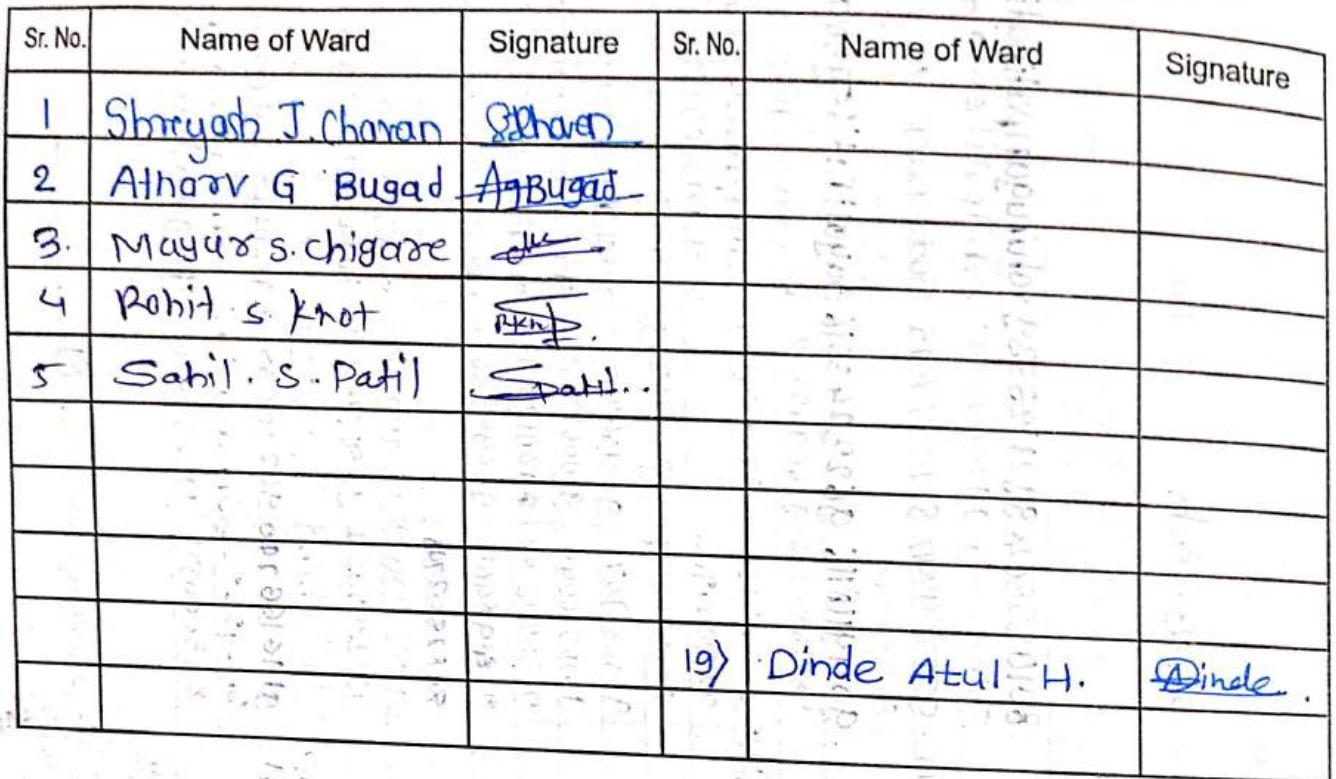 Sr. No. Name of Ward Signature Sr. No. Name of Ward Signature
1 Shreyash J. Chavan SJChavan
2 Atharv G Bugad AgBugad
3. Mayur S. Chigare
4 Rohit S. Khot RKhot
5 Sahil. S. Patil SPatil..
19) Dinde Atul H. Dinde.